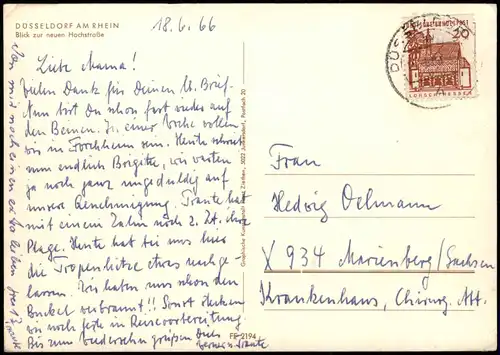 DÜSSELDORF AM RHEIN
Blick zur neuen Hochstraße
18.6.66
Liebe Mama!
Vielen Dank für Deinen lb. Brief.
Nun bist Du schon fast wieder auf
den Beinen. In einer Woche wollen
wir in Forchheim sein. Heute schrieb
nun endlich Brigitte, wir warten
ja noch ganz ungeduldig auf
unsere Genehmigung. Traute hat
mit einem Zahn noch z. Zt. ihre
Plage. Heute hat bei uns hier
die Tropenhitze etwas nachge-
lassen. Wir haben uns schon den
Buckel verbrannt!! Sonst stecken
wir noch feste in Reisevorbereitung.
Bis zum Wiedersehn grüßen Dich
Werner u. Traute
Von mir noch einen extra lieben
Graphische Kunstanstalt Ziethen, 5022 Junkersdorf, Postfach 20
FF 2194
DEUTSCHE BUNDESPOST
20
LORSCH HESSEN
DÜSSELDORF
Frau
Hedwig Oelmann
X 934 Marienberg/Sachsen
Krankenhaus, Chirurg. Abt.